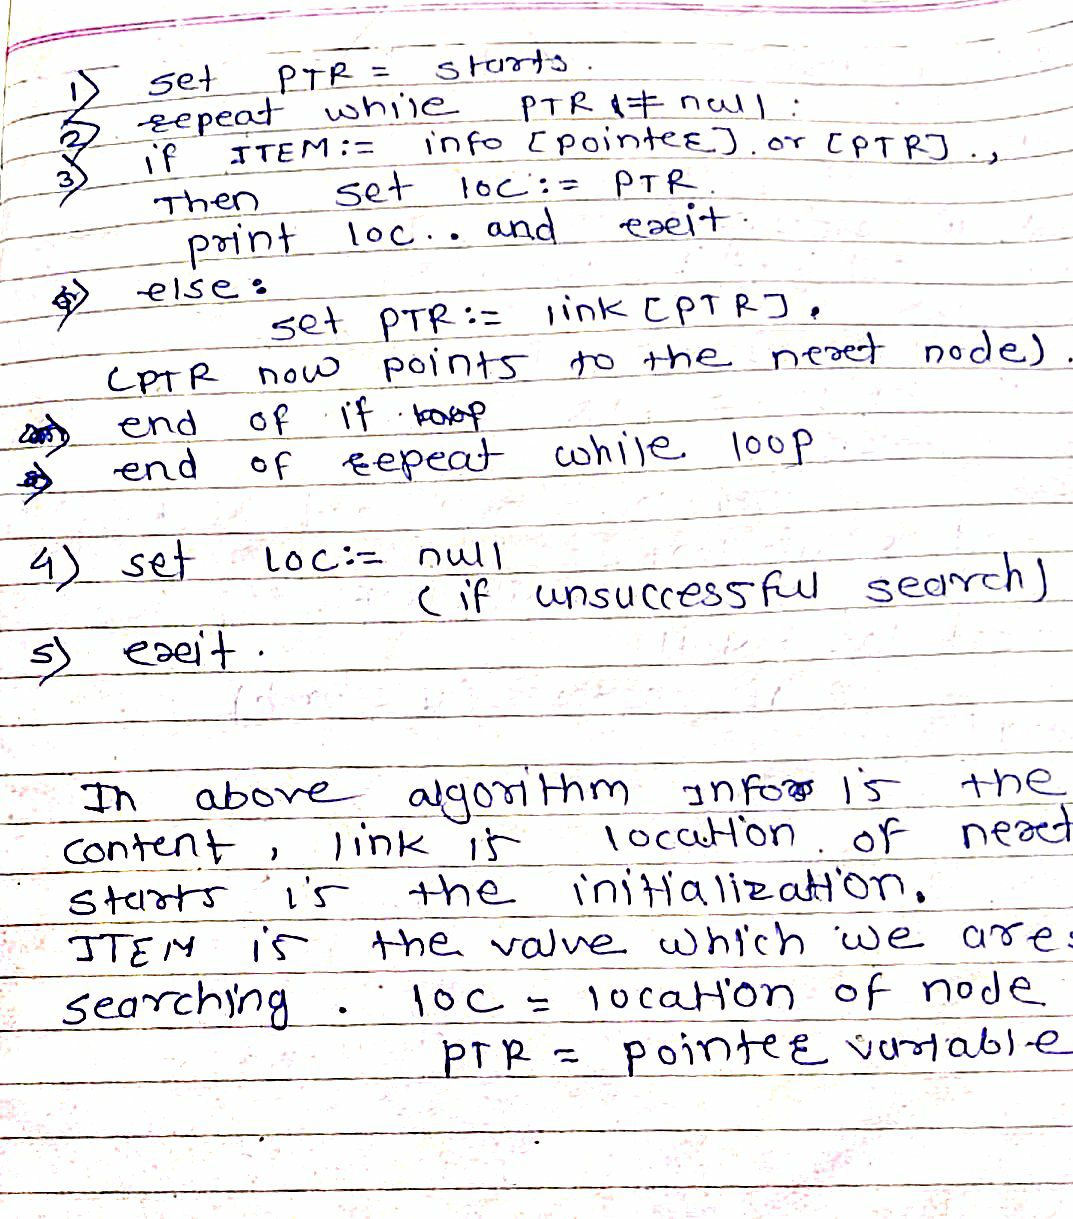 1) set PTR = starts.
2) repeat while PTR != null :
3) if ITEM := info [pointer]. or [PTR].,
Then set loc := PTR.
print loc.. and exit.
else :
set PTR := link [PTR].
(PTR now points to the next node).
end of if
end of repeat while loop.
4) set LOC := null
(if unsuccessful search)
5) exit.
In above algorithm Info is the
content, link is location. of next
starts is the initialization.
ITEM is the value which we are
searching. loc = location of node
PTR = pointer variable